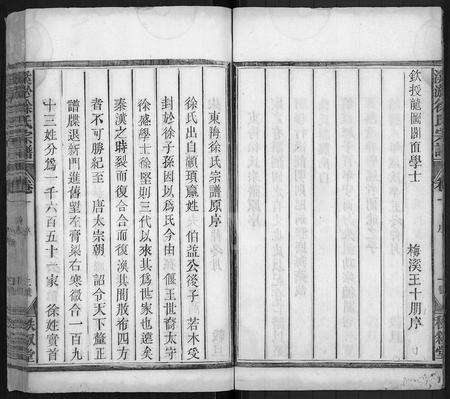 欽授龍圖閣直學士
梅溪王十朋序
東海徐氏宗譜原序
徐氏出自顓頊嬴姓 伯益公後子 若木受
封於徐子孫因以爲氏今由 偃王世裔太守
徐盛學士徐堅則三代以來其爲世家也遠矣
秦漢之時裂而復合合而復渙其間散布四方
者不可勝紀至 唐太宗朝 詔令天下釐正
譜牒退新門進舊望左膏粱右寒微合一百九
十三姓分爲一千六百五十一家 徐姓實首
徐氏宗譜
卷一
序